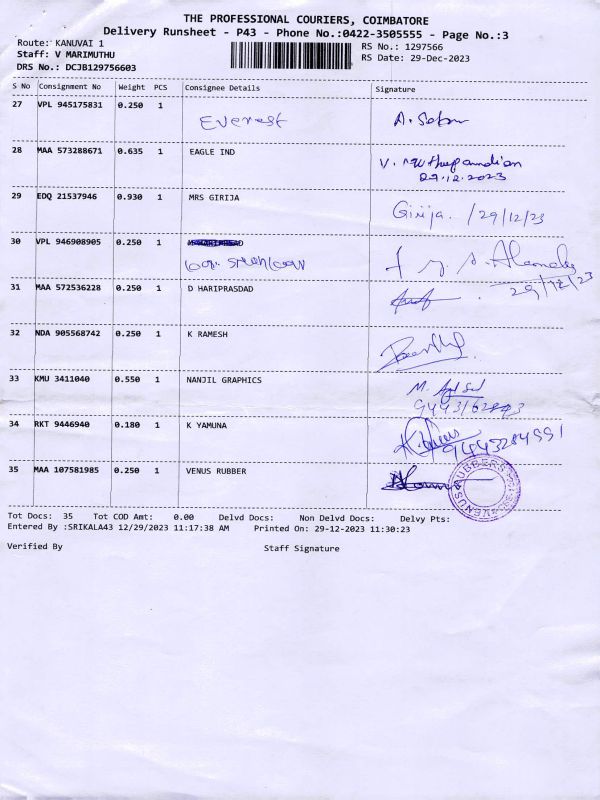 THE PROFESSIONAL COURIERS, COIMBATORE
Delivery Runsheet - P43 - Phone No.:0422-3505555 - Page No.:3
Route: KANUVAI 1
RS No.: 1297566
Staff: V MARIMUTHU
RS Date: 29-Dec-2023
DRS No.: DCJB129756603
S No Consignment No Weight PCS Consignee Details Signature
27 VPL 945175831 0.250 1 Everest
28 MAA 573288671 0.635 1 EAGLE IND
29.12.2023
29 EDQ 21537946 0.930 1 MRS GIRIJA Girija. /29/12/23
30 VPL 946908905 0.250 1
29/12/23
31 MAA 572536228 0.250 1 D HARIPRASDAD
32 NDA 905568742 0.250 1 K RAMESH
33 KMU 3411040 0.550 1 NANJIL GRAPHICS
34 RKT 9446940 0.180 1 K YAMUNA
35 MAA 107581985 0.250 1 VENUS RUBBER
VENUS RUBBERS
Tot Docs: 35 Tot COD Amt: 0.00 Delvd Docs: Non Delvd Docs: Delvy Pts:
Entered By :SRIKALA43 12/29/2023 11:17:38 AM Printed On: 29-12-2023 11:30:23
Verified By Staff Signature